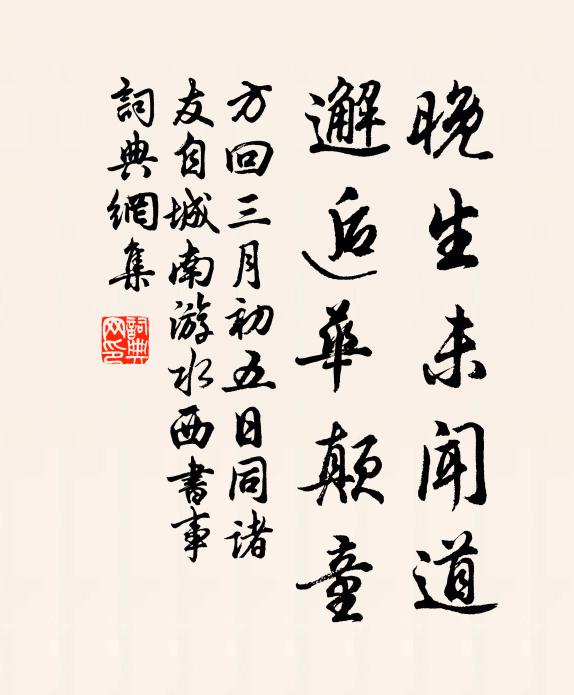 晚生未聞道
邂逅華顛童
方回三月初五日同諸
友自城南游水西書事
詞典網集
詞典
网印